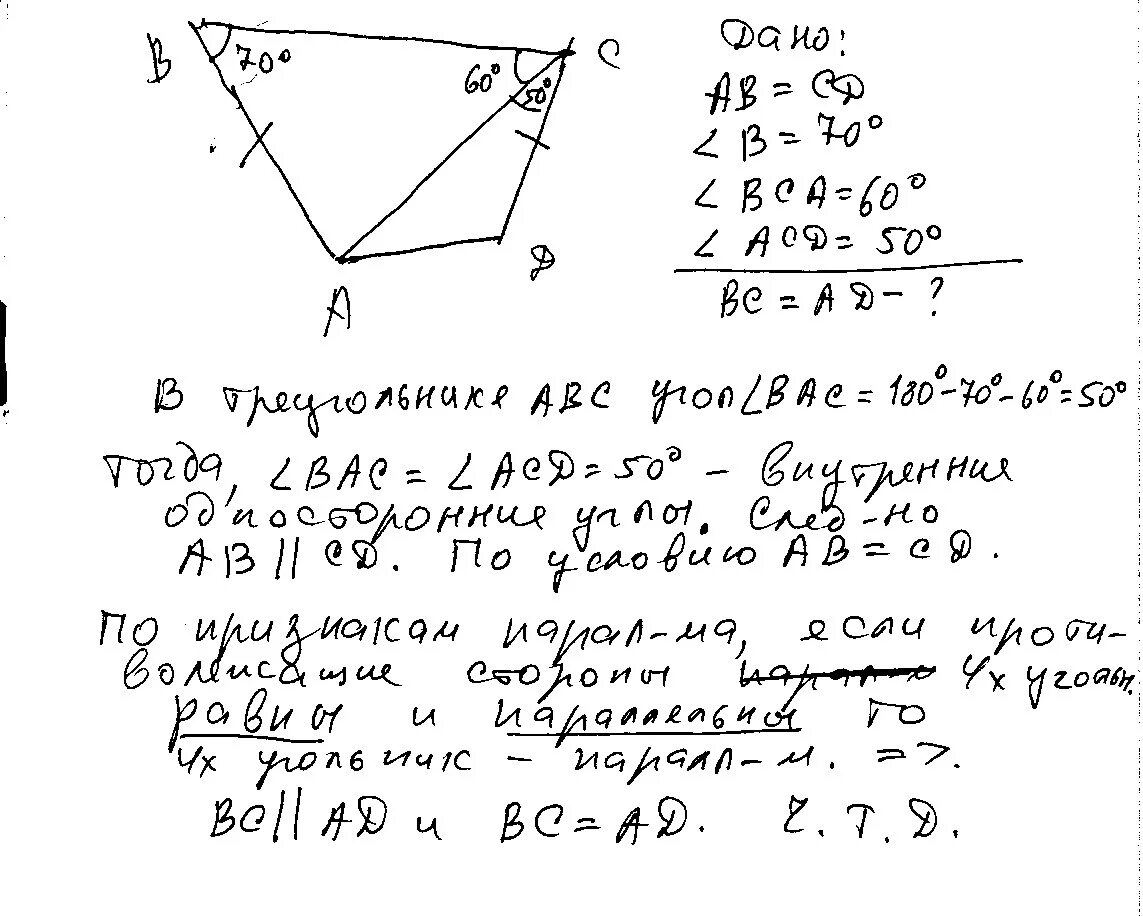 B
70°
60°
50°
C
A
D
Дано:
AB = CD
∠ B = 70°
∠ BCA = 60°
∠ ACD = 50°
BC = AD - ?
В треугольнике ABC угол ∠BAC = 180° - 70° - 60° = 50°
тогда, ∠BAC = ∠ACD = 50° - внутренние
односторонние углы. След-но
AB || CD. По условию AB = CD.
По признакам парал-ма, если проти-
волежащие стороны 4х угольн.
равны и параллельны то
4х угольник - паралл-м. =>.
BC || AD и BC = AD. Ч.Т.Д.